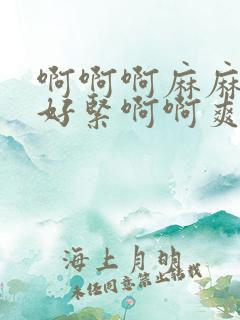 啊啊啊麻麻
好紧啊啊爽
海上月明
未经同意禁止转载